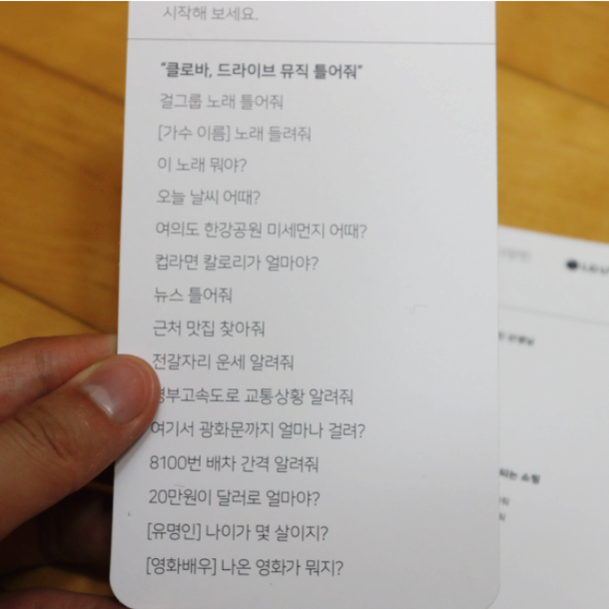 시작해 보세요.
"클로바, 드라이브 뮤직 틀어줘"
걸그룹 노래 틀어줘
[가수 이름] 노래 들려줘
이 노래 뭐야?
오늘 날씨 어때?
여의도 한강공원 미세먼지 어때?
컵라면 칼로리가 얼마야?
뉴스 틀어줘
근처 맛집 찾아줘
전갈자리 운세 알려줘
경부고속도로 교통상황 알려줘
여기서 광화문까지 얼마나 걸려?
8100번 배차 간격 알려줘
20만원이 달러로 얼마야?
[유명인] 나이가 몇 살이지?
[영화배우] 나온 영화가 뭐지?